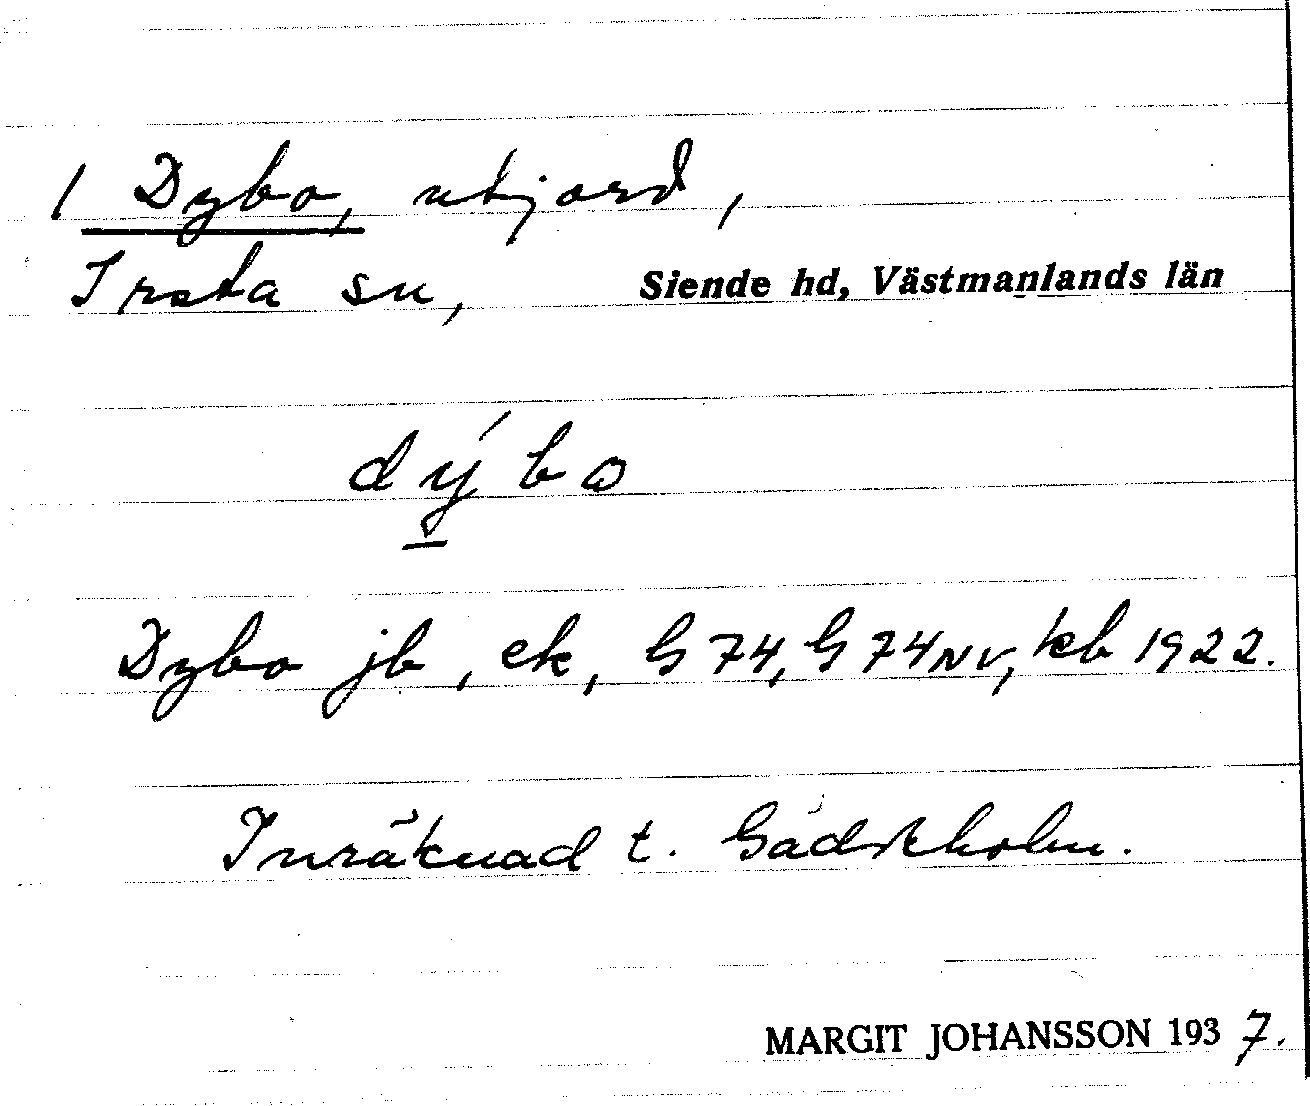 1 Dybo, utjord,
Irsta sn, Siende hd, Västmanlands län
dýbo
Dybo jb, ek, G 74, G 74 NV, kb 1922.
Inräknad t. Gädskholm.
MARGIT JOHANSSON 1937.